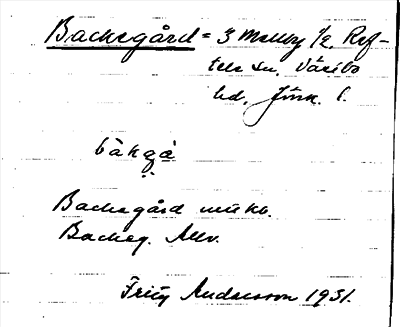 Backegård = 3 Målby 1/2, Ref-
tele sn. Västbo
hd, Jönk. l.
bàkgȧ
Backegård mtkb.
Backeg. Allv.
Fritz Andersson 1931.